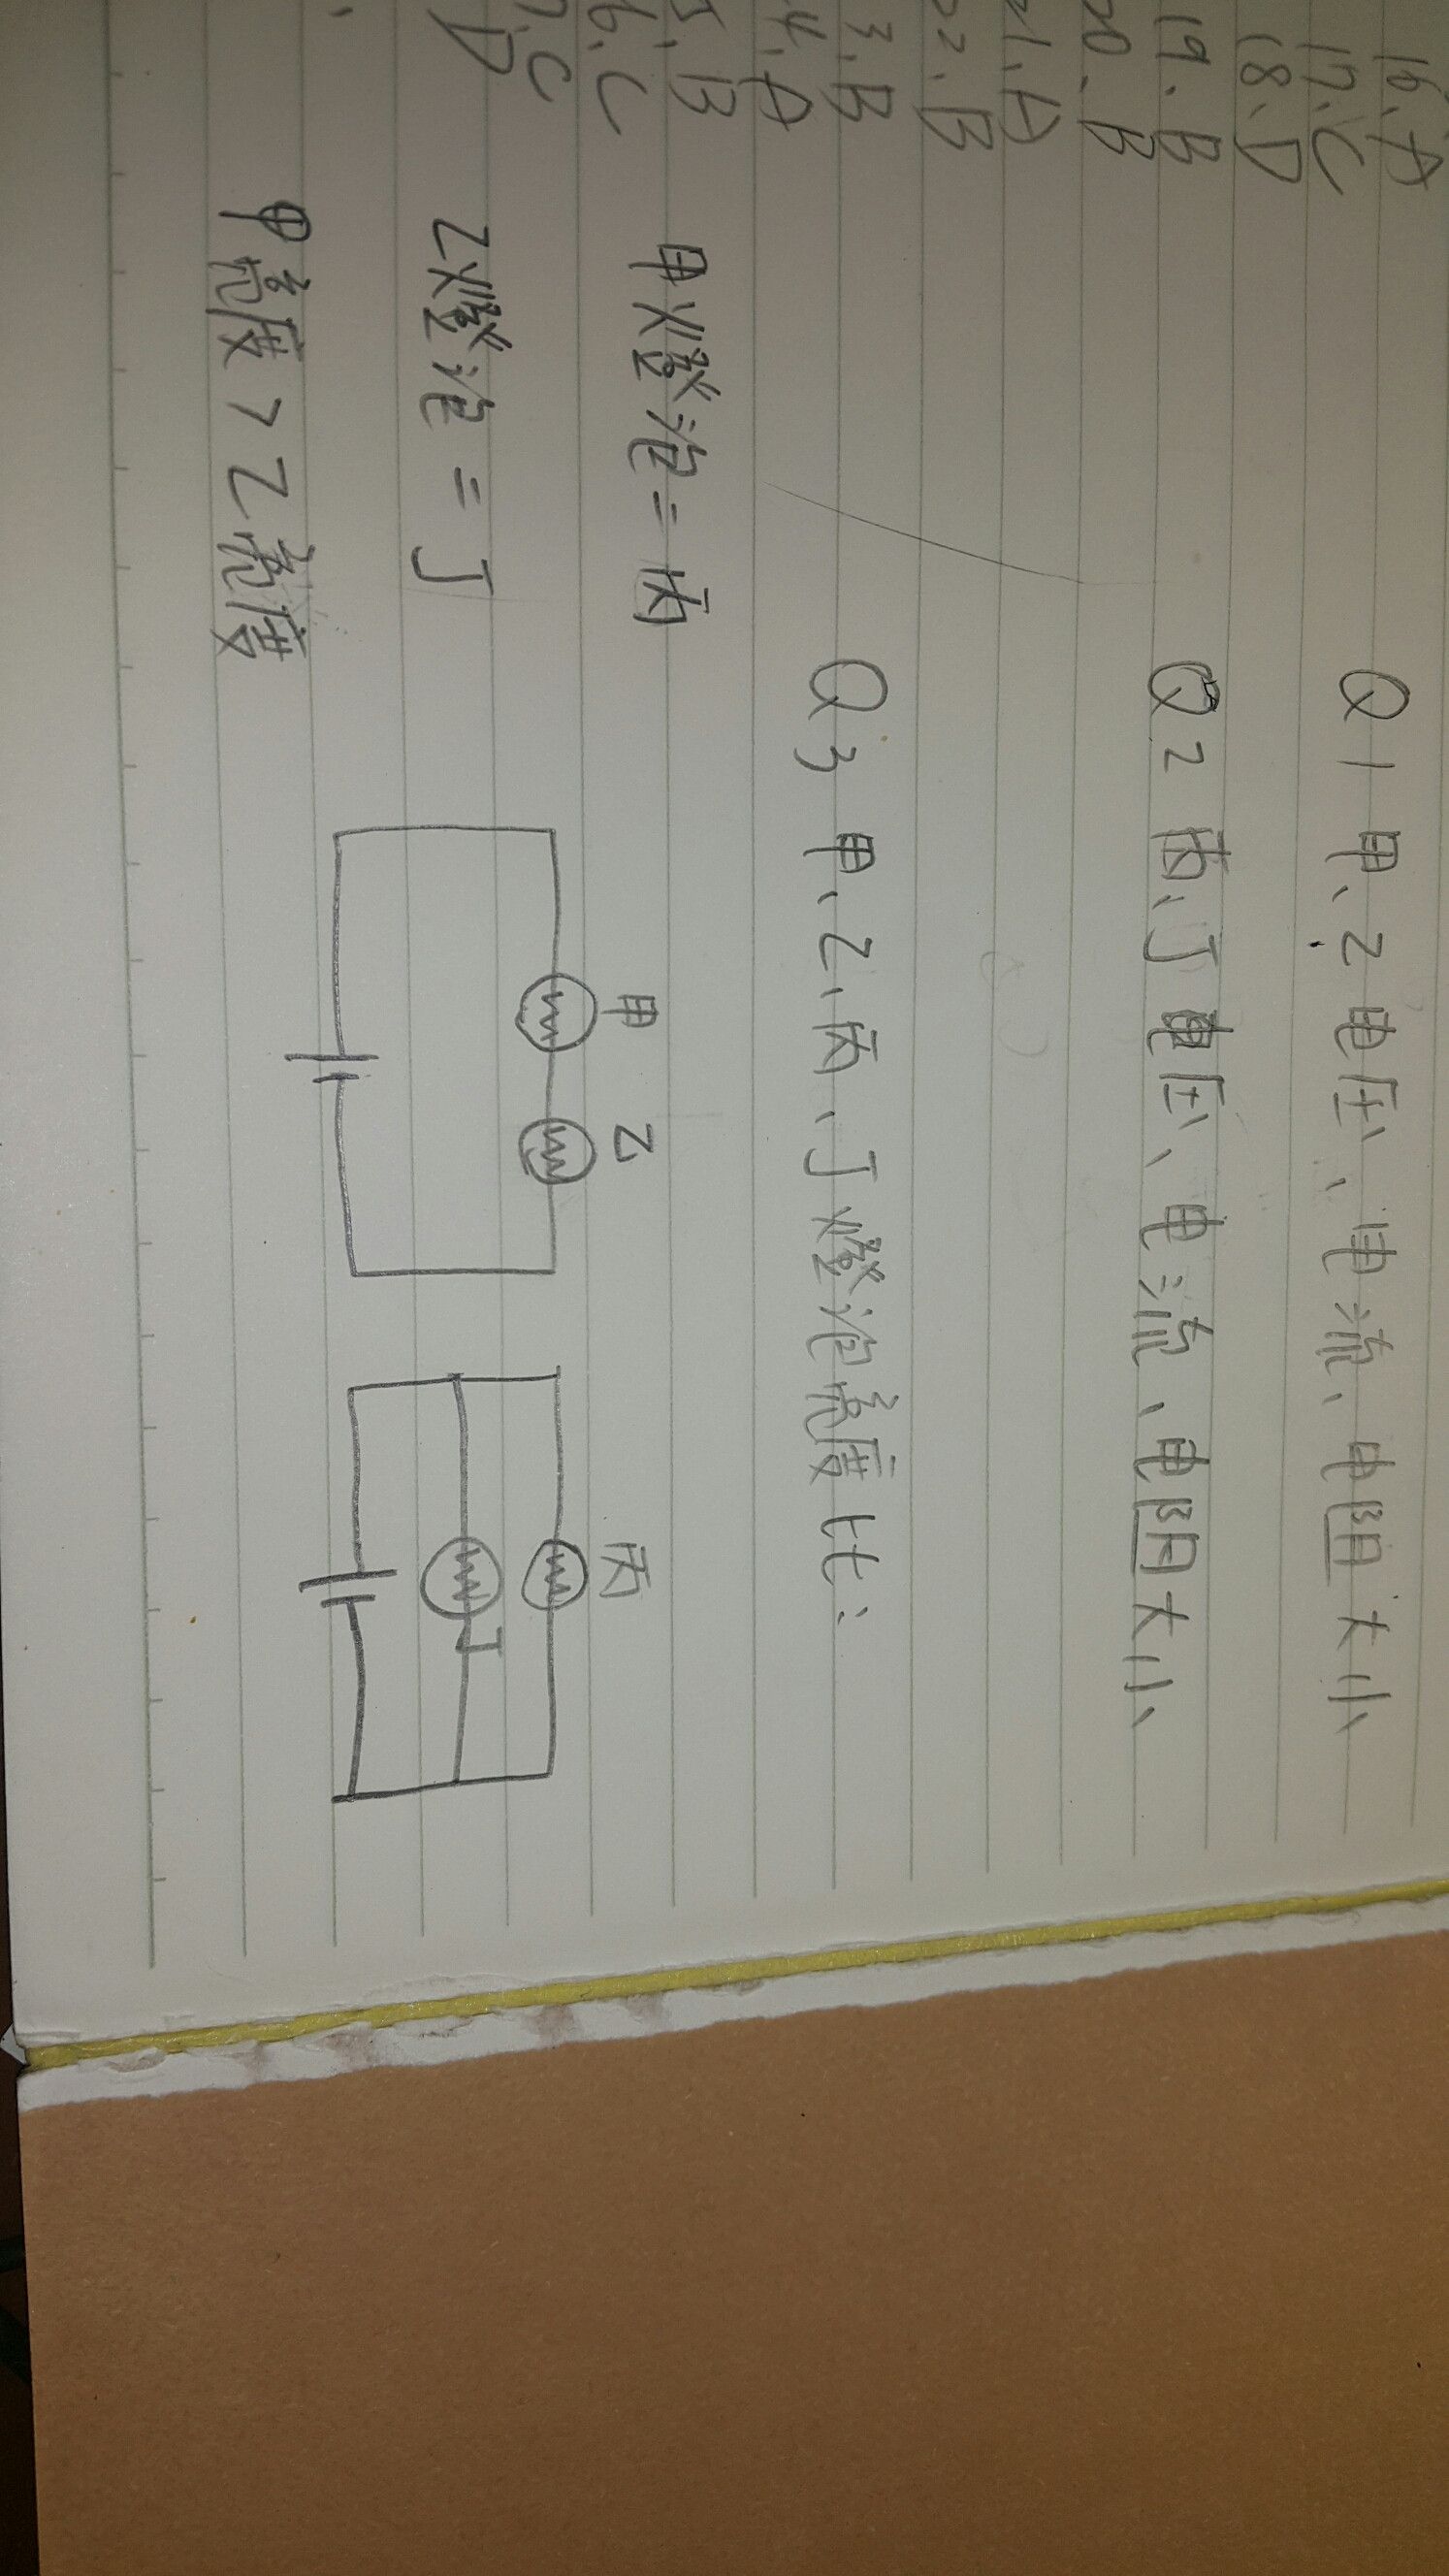 16、A
17、C
18、D
19、B
20、B
21、A
22、B
3、B
4、A
5、B
6、C
7、C
D
Q1 甲、乙电压、电流、电阻大小
Q2 丙、丁电压、电流、电阻大小
Q3 甲、乙、丙、丁燈泡亮度比:
甲燈泡=丙
乙燈泡=丁
甲亮度>乙亮度
甲 乙
丙
丁